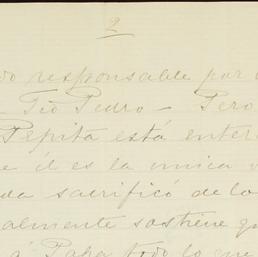 2
do responsable por
Tío Pedro — Pero
Pepita está enter
e él es la unica v
da sacrificó de lo
almente sostiene qu
á Papa todo lo que